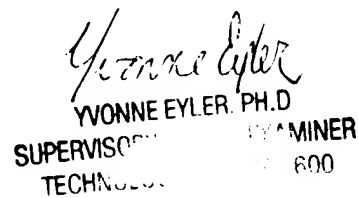 Yvonne Eyler
YVONNE EYLER, PH.D
SUPERVISO
MINER
TECHN
600